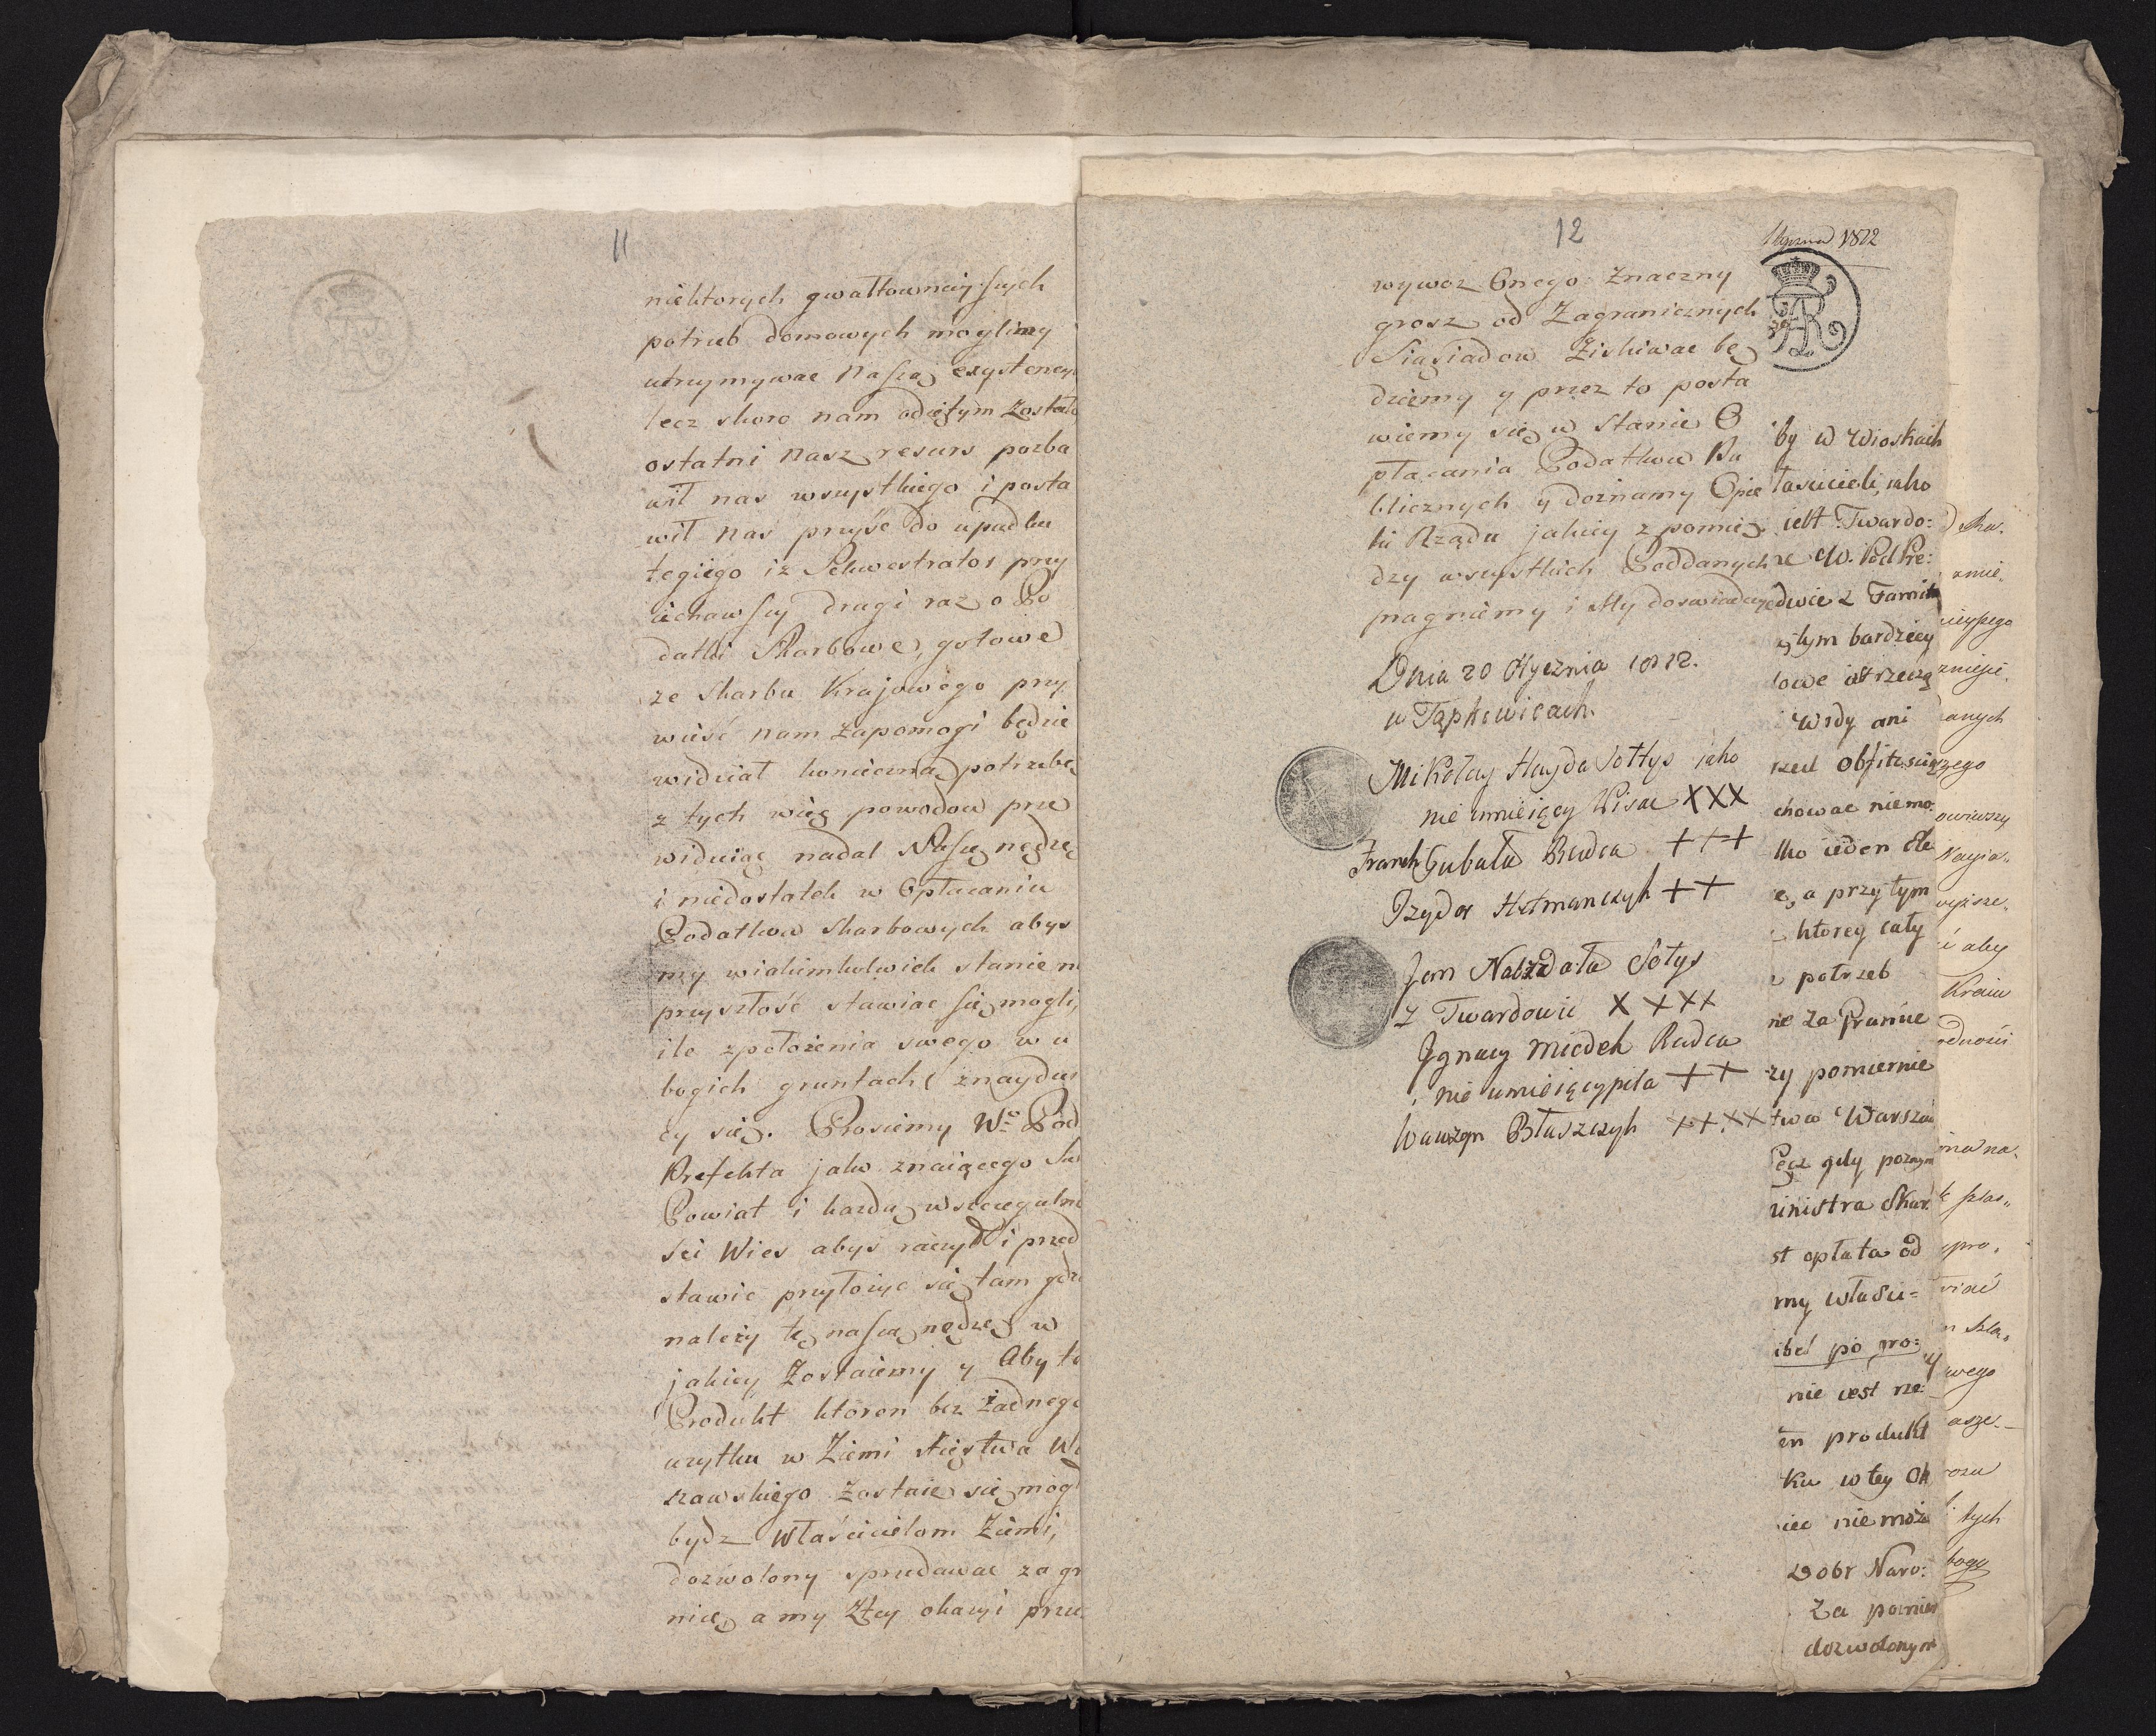 11
niektorych gwałtowniey:szych
potrzeb domowych moglismy
utrzymywac Naszą exystency
lecz skoro nam odiętym został
ostatni Nasz resurs pozba
wił nas wszystkiego i posta
wił nas przyśc do upadku
tęgiego iz Sekwestrator przy
iechawszy drugi raz o Po
datki Skarbowe, gotowe
ze Skarbu Krajowego przy
wieść nam Zapomogi będzie
widział konieczną potrzebę
z tych więc powodow prze
widuiąc nadal Naszę nędzę
i niedostatek w Opłacaniu
Podatkow Skarbowych abys
my wiakimkolwiek stanie n
przyszłość stawiac się mogli,
ile zpołożenia swego w u
bogich gruntach znayduią
cy się. Prosiemy Wo Pod
Prefekta jako znaiącego Sw
Powiat i kazdą wszczegulno
sci Wies abys raczył i przed
stawic przyłożyc się tam gdzie
należy tę naszą nędzę w
jakiey Zostaiemy y Aby to
Produkt ktoren bez żadnego
uzytku w Ziemi Xięstwa Wa
rszawskiego Zostaie się mogł
bydz Właścicielom Ziemi,
dozwolony sprzedawac za gra
nicę a my Ztey okazyi przez
12
Stycznia 1812
wywoz Onego Znaczny
grosz od Zagranicznych
Siąsiadow Ziskiwac bę
dziemy y przez to posta
wiemy się w Stanie O
płacania Podatkow Pu
blicznych y doznamy Opie
ki Rządu jakiey z pomię
dzy wszystkich Poddanych
pragniemy i My doswiadczyc
Dnia 20 Stycznia 1812.
w Tąpkowicach.
Mikołay Hayda Sołtys jako
nie umieiący Pisac XXX
Franck Gubała Radca +++
Izydor Hetmanczyk ++
Jem Nabzdała Sołtys
z Twardowic X+XX
Ignacy Miedek Radca
nie umieiący pisa ++
Wawrzyn Błaszczyk ++XX
by w Wioskach
łascicieli, iako
iest Twardo:
ze W. Pod Pre:
dwie z Famili
y tym bardziey
łowe istrzeczą
i Wsdy ani
rzed Obfitoscią
chowac niemo:
lko ieden Ele
e, a przytym
ktorey cały
z potrzeb
nie Za Pranine
zy pomiernie
twa Warszaw
Lecz gdy poznym
inistra Skar
st opłata od
my własci=
ibel po gro:
nie iest rze:
en produkt
ku w tey Ok
iec niemoże
Dobr Naro:
Za pomier
dozwolonym
d ska.
omie.
ieyszego
zmieyi.
danych
zego
owiwszy
Nayia„
wyisze„
i aby
Kraiu
odnosci
ona na„
szlas„
pro.
wiac
n Szla„
wego
asze.
rozu
tych
bogy